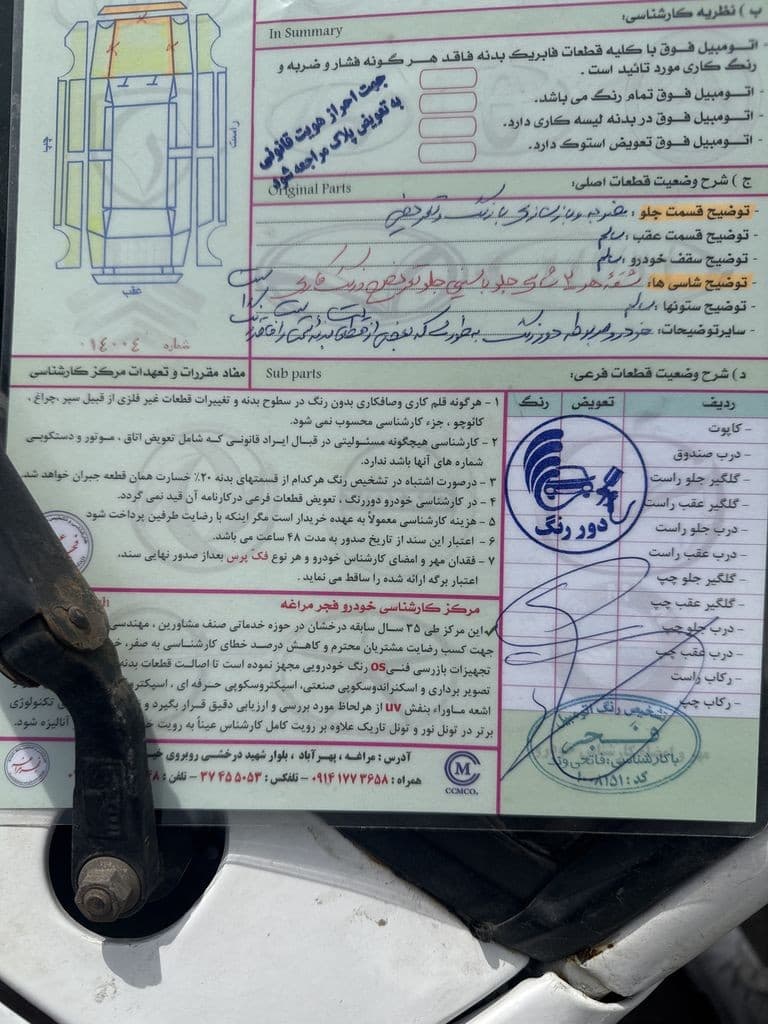 ب ) نظریه کارشناسی:
In Summary
- اتـومبیل فـوق بـا کلیه قطعات فابریک بدنه فاقد هـر گونه فشار و ضربه و
رنگ کاری مورد تائید است .
- اتـومبیل فـوق تمام رنگ می باشد.
- اتـومبیل فـوق در بدنه لیسه کاری دارد.
- اتـومبیل فـوق تعویض استوک دارد.
جهت احراز هویت قانونی
به تعویض پلاک مراجعه شود
راست
چپ
عقب
شماره ۰۱۴۰۰۴
ج ) شرح وضعیت قطعات اصلی:
Original Parts
- توضیح قسمت جلو :
- توضیح قسمت عقب : سالم
- توضیح سقف خودرو : سالم
- توضیح شاسی ها:
- توضیح ستونها : سالم
- سایرتوضیحات:
د ) شرح وضعیت قطعات فرعی:
Sub parts
ردیف تعویض رنگ
- کاپوت
- درب صندوق
- گلگیر جلو راست
- گلگیر عقب راست
- درب جلو راست
- درب عقب راست
- گلگیر جلو چپ
- گلگیر عقب چپ
- درب جلو چپ
- درب عقب چپ
- رکاب راست
- رکاب چپ
دور رنگ
تشخیص رنگ اتومبیل
فجر
کد : ۱۰۰۸۱۵۱
مفاد مقررات و تعهدات مرکز کارشناسی
۱ - هرگونه قلم کاری وصافکاری بدون رنگ در سطوح بدنه و تغییرات قطعات غیر فلزی از قبیل سپر ،چراغ ،
کائوچو ، جزء کارشناسی محسوب نمی شود.
۲ - کارشناسی هیچگونه مسئولیتی در قبال ایراد قانونی کـه شامل تعویض اتاق ، مـوتور و دستکویی
شماره های آنها باشد ندارد.
۳ - درصورت اشتباه در تشخیص رنگ هرکدام از قسمتهای بدنه ۲۰٪ خسارت همان قطعه جبران خواهد شد
۴ - در کارشناسی خودرو دوررنگ ، تعویض قطعات فرعی درکارنامه آن قید نمی گردد.
۵ - هزینه کارشناسی معمولاً به عهده خریدار است مگر اینکه با رضایت طرفین پرداخت شود
۶ - اعتبار این سند از تاریخ صدور به مدت ۴۸ ساعت می باشد.
۷ - فقدان مهر و امضای کارشناس خودرو و هر نوع فک پرس بعداز صدور نهایی سند،
اعتبار برگه ارائه شده را ساقط می نماید .
مرکز کارشناسی خودرو فجر مراغه
✓این مرکز طی ۳۵ سـال سابقه درخشان در حوزه خدماتی صنف مشاورین ، مهندسی
جهت کسب رضایت مشتریان محترم و کاهش درصـد خطای کارشناسی به صفر،
تجهیزات بازرسی فنـیos رنگ خودرویی مجهز نموده است تا اصالـت قطعات بدنه
تصویر برداری و اسکنراندوسکوپی صنعتی، اسپکتروسکوپی حرفـه ای ،
اشعه ماوراء بنفش uv از هرلحاظ مورد بررسی و ارزیابی دقیق قرار بگیرد و
تکنولوژی
برتر در تونل نور و تونل تاریک علاوه بر رویت کامل کارشناس عیناً به رویت
آنالیزه شود.
آدرس : مراغـه ، پهـرآباد ، بلوار شهید درخشی روبروی
همراه : ۰۹۱۴ ۱۷۷ ۳۶۵۸ – تلفکس : ۳۷ ۴۵ ۵۰۵۳ – تلفن :
CCMCO.